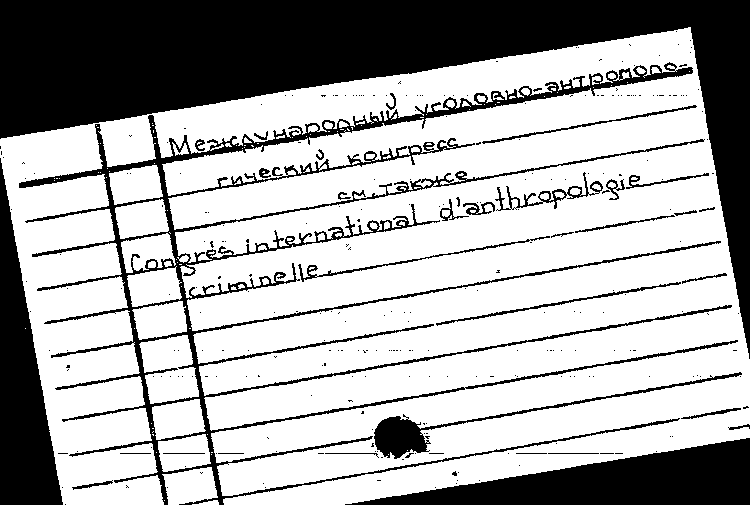 Международный уголовно-антрополо-
гический конгресс
см. также
Congrés international d'anthropologie
criminelle.